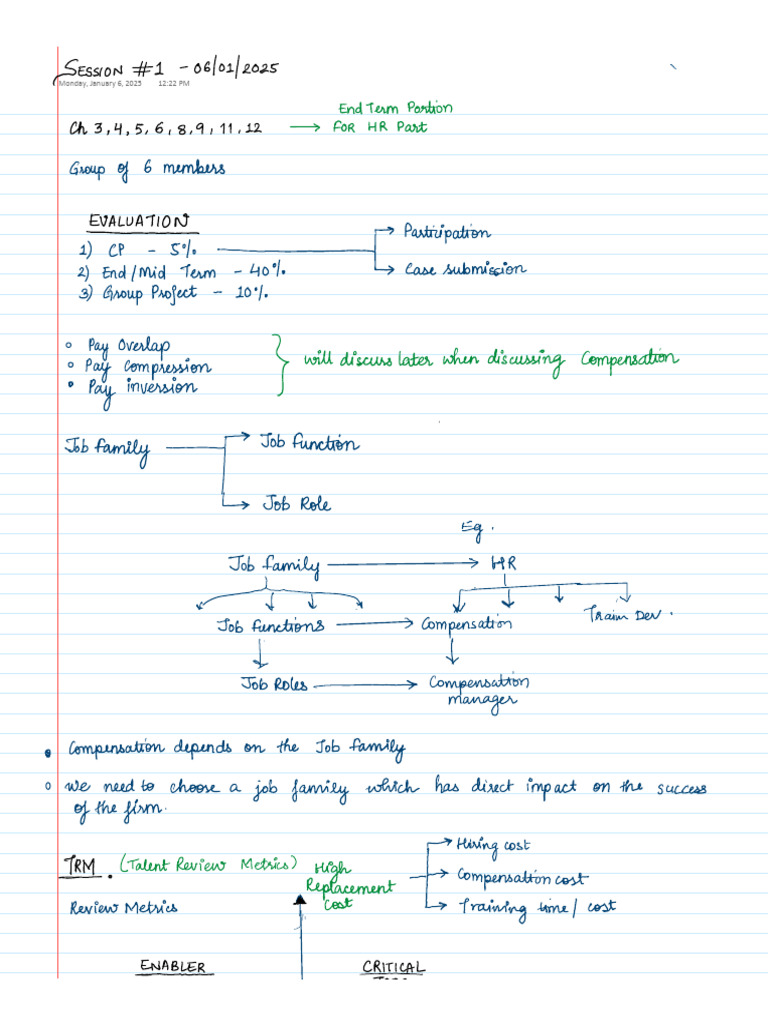 SESSION #1 - 06/01/2025
Monday, January 6, 2025 12:22 PM
End Term Portion
Ch 3, 4, 5, 6, 8, 9, 11, 12 → For HR Part
Group of 6 members
EVALUATION
1) CP - 5%
Participation
Case submission
2) End/Mid Term - 40%
3) Group Project - 10%
○ Pay Overlap
○ Pay Compression
• Pay inversion
will discuss later when discussing Compensation
Job family
Job function
Job Role
Eg.
Job family → HR
Job functions → Compensation
Train Dev.
Job Roles → Compensation
manager
• Compensation depends on the Job family
○ We need to choose a job family which has direct impact on the success
of the firm.
TRM. (Talent Review Metrics)
High
Replacement
Cost
Hiring cost
Compensation cost
Training time/cost
Review Metrics
ENABLER
CRITICAL